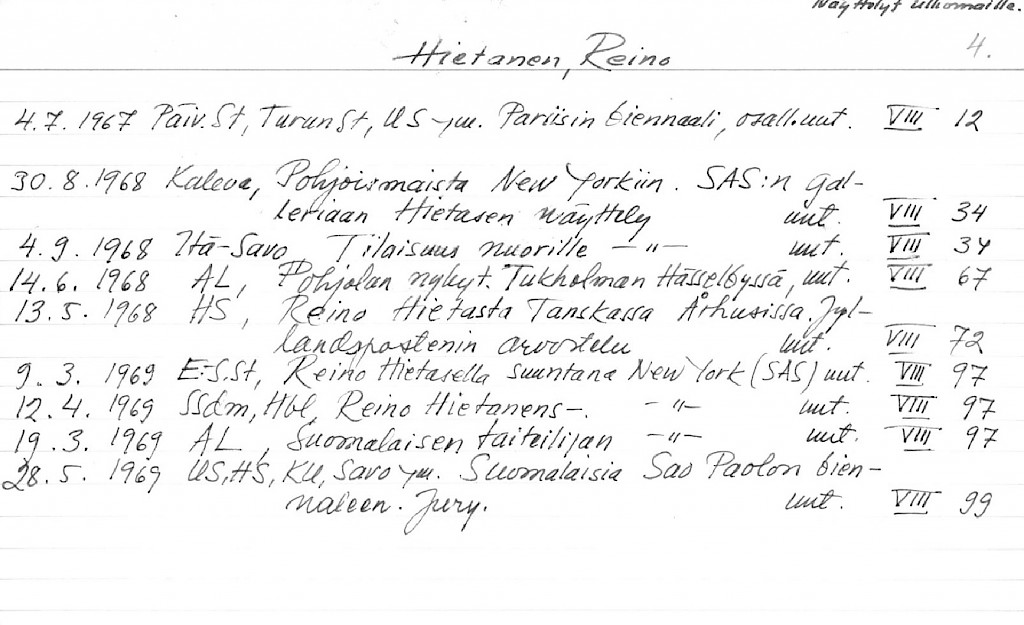 Näyttelyt ulkomailla.
4.
Hietanen, Reino
4.7. 1967 Päiv.St, TurunSt, US ym. Pariisin biennaali, osall. uut. VIII 12
30.8.1968 Kaleva, Pohjoismaista New Yorkiin. SAS:n gal-
leriaan Hietasen näyttely uut. VIII 34
4.9. 1968 Itä-Savo Tilaisuus nuorille —"— uut. VIII 34
14.6. 1968 AL, Pohjolan nykyt. Tukholman Hässelbyssä, uut. VIII 67
13.5. 1968 HS, Reino Hietasta Tanskassa Århusissa. Jyl-
landspostenin arvostelu uut. VIII 72
9.3. 1969 E-S.St, Reino Hietasella suuntana New York (SAS) uut. VIII 97
12.4. 1969 SSdm, Hbl, Reino Hietanens-. —"— uut. VIII 97
19.3. 1969 AL, Suomalaisen taiteilijan —"— uut. VIII 97
28.5. 1969 US, HS, KU, Savo ym. Suomalaisia Sao Paolon bien-
naleen. Jury. uut. VIII 99